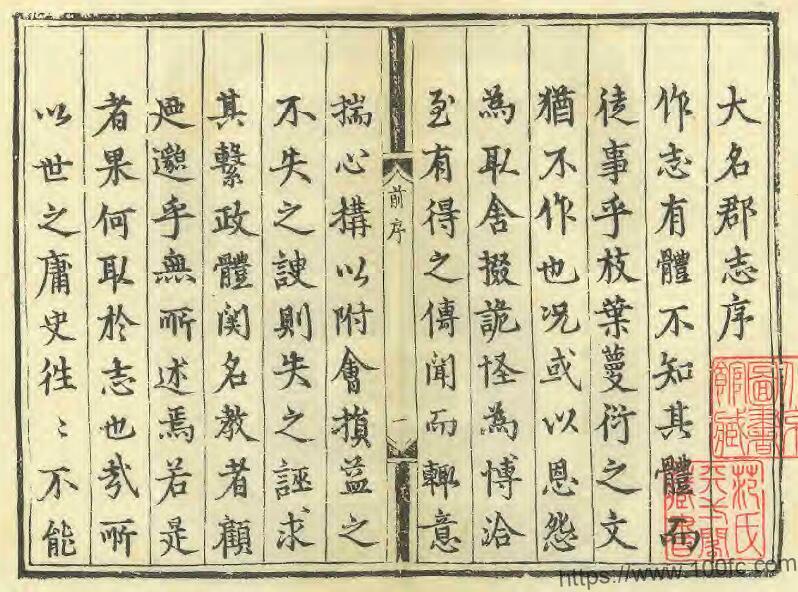 大名郡志序
作志有體不知其體而
徒事乎枝葉蔓衍之文
猶不作也况或以恩怨
為取舍掇詭怪為愽洽
至有得之傳聞而輙意
前序
一
揣心搆以附會損益之
不失之諛則失之誣求
其繫政體関名教者顧
迺邈乎無所述焉若是
者果何取於志也哉所
以世之庸史徃〻不能
圖書
范氏
天一閣
藏書
https://www.100fc.com